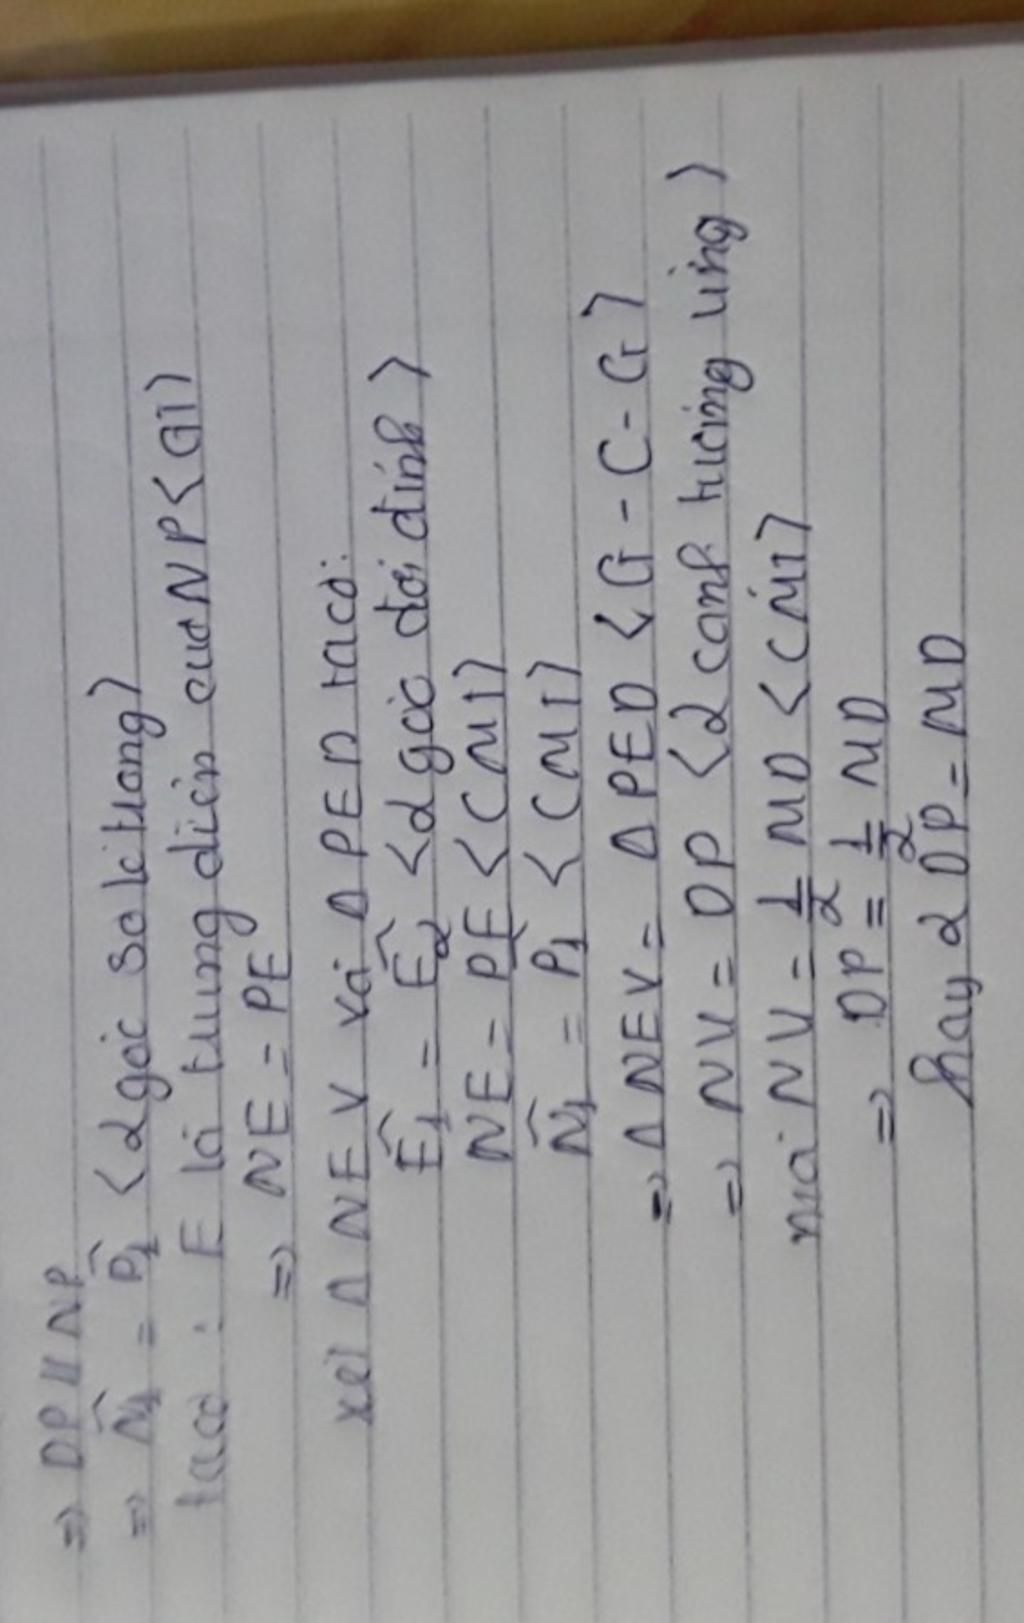 => DP // NP
=> N̂₁ = P̂₁ <2 góc so le trong>
ta có : E là trung điểm của NP <GT>
=> NE = PE
xét Δ NEV và Δ PED ta có:
Ê₁ = Ê₂ <2 góc đối đỉnh>
NE = PE <CMT>
N̂₁ = P̂₁ <CMT>
=> Δ NEV = Δ PED <G - C - G>
=> NV = DP <2 cạnh tương ứng>
mà NV = 1/2 MD <CMT>
=> DP = 1/2 MD
hay 2 DP = MD